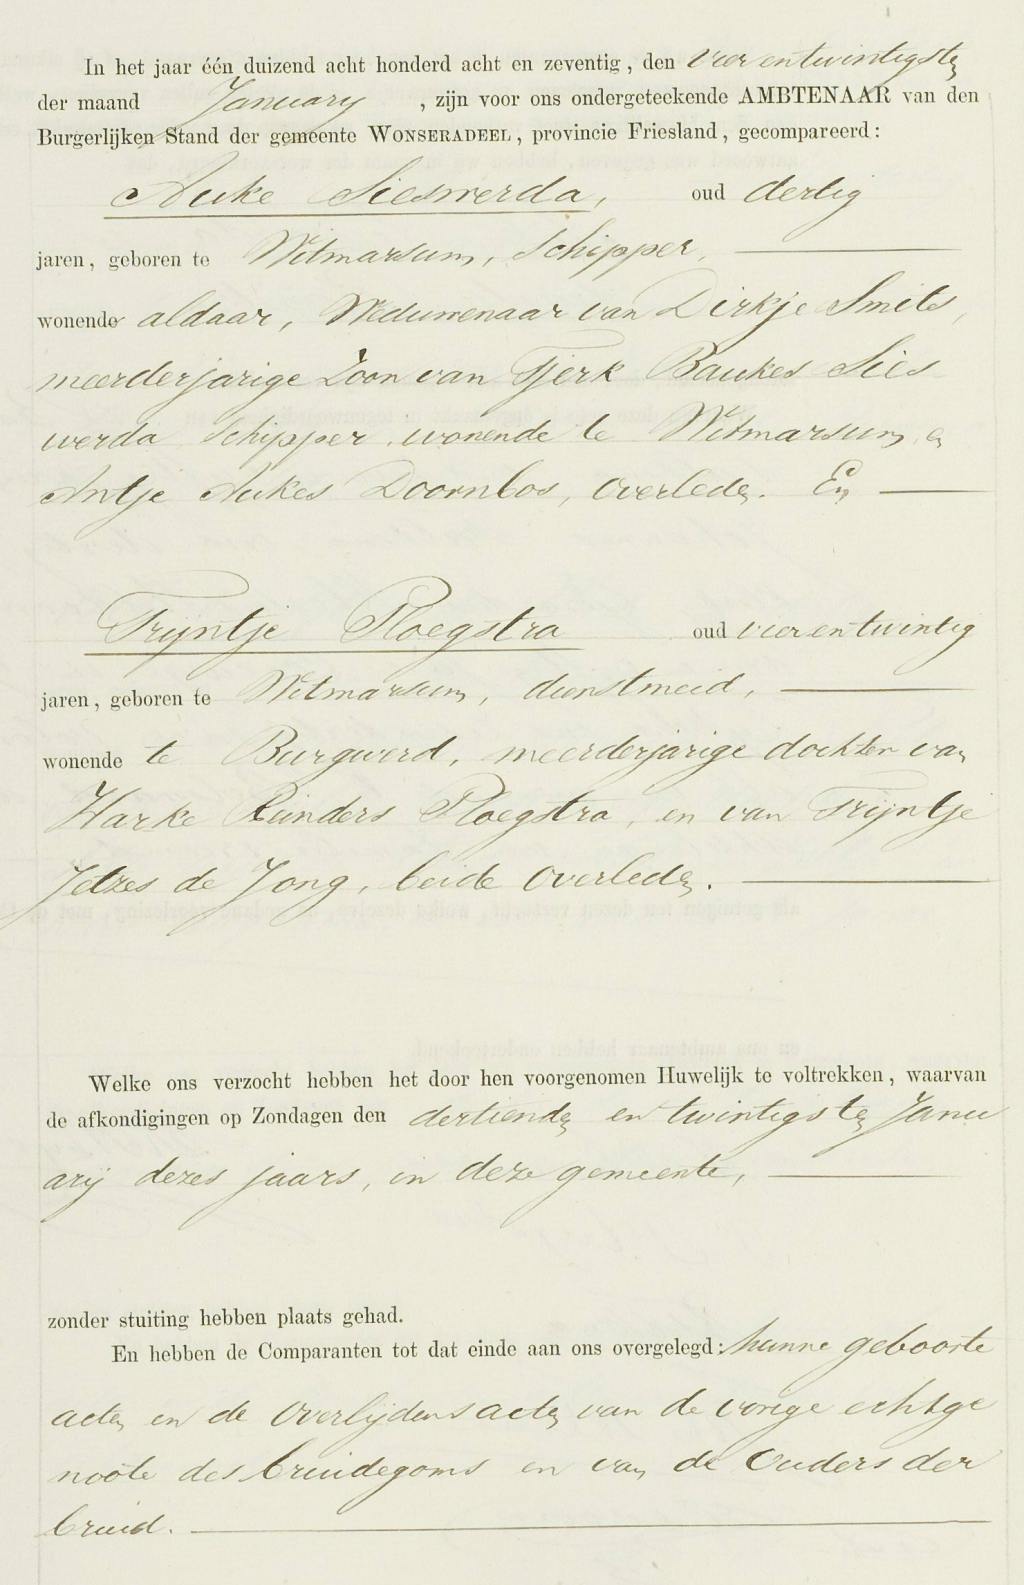 In het jaar één duizend acht honderd acht en zeventig, den vier en twintigsten
der maand January, zijn voor ons ondergeteekende AMBTENAAR van den
Burgerlijken Stand der gemeente WONSERADEEL, provincie Friesland, gecompareerd:
Auke Sieswerda, oud dertig
jaren, geboren te Witmarsum, Schipper,
wonende aldaar, Weduwenaar van Dirkje Smits,
meerderjarige Zoon van Tjerk Baukes Sies
werda Schipper wonende te Witmarsum, en
Antje Aukes Doornbos, overleden. En
Trijntje Ploegstra oud vier en twintig
jaren, geboren te Witmarsum, dienstmeid,
wonende te Burgwerd, meerderjarige dochter van
Harke Reinders Ploegstra, en van Trijntje
Jetzes de Jong, beide overleden.
Welke ons verzocht hebben het door hen voorgenomen Huwelijk te voltrekken, waarvan
de afkondigingen op Zondagen den dertienden en twintigsten Janu
arij dezes jaars, in deze gemeente,
zonder stuiting hebben plaats gehad.
En hebben de Comparanten tot dat einde aan ons overgelegd: hunne geboorte
acten en de overlijdensacten van de vorige echtge
noote des bruidegoms en van de Ouders der
bruid.